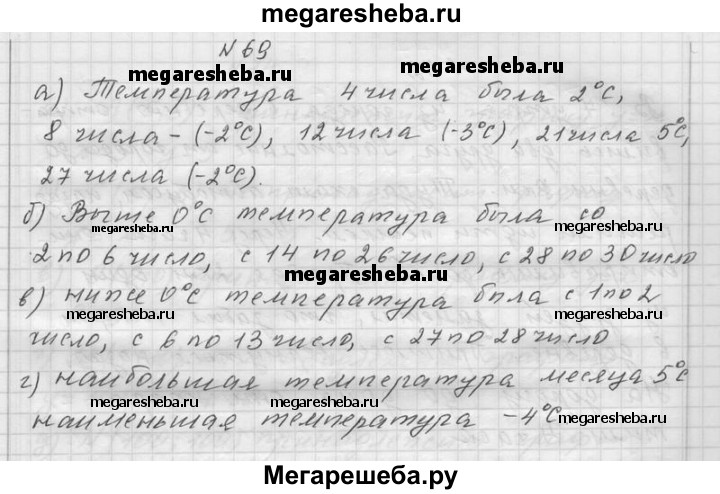 megaresheba.ru
N 69
megaresheba.ru megaresheba.ru
а) Температура 4 числа была 2°С,
8 числа - (-2°С), 12 числа (-3°С), 21 числа 5°С,
27 числа (-2°С).
б) Выше 0°С температура была со
megaresheba.ru megaresheba.ru
2 по 6 число, с 14 по 26 число, с 28 по 30 число
megaresheba.ru
в) ниже 0°С температура была с 1 по 2
megaresheba.ru megaresheba.ru
число, с 6 по 13 число, с 27 по 28 число
г) наибольшая температура месяца 5°С
megaresheba.ru megaresheba.ru
наименьшая температура -4°С
Мегарешеба.ру